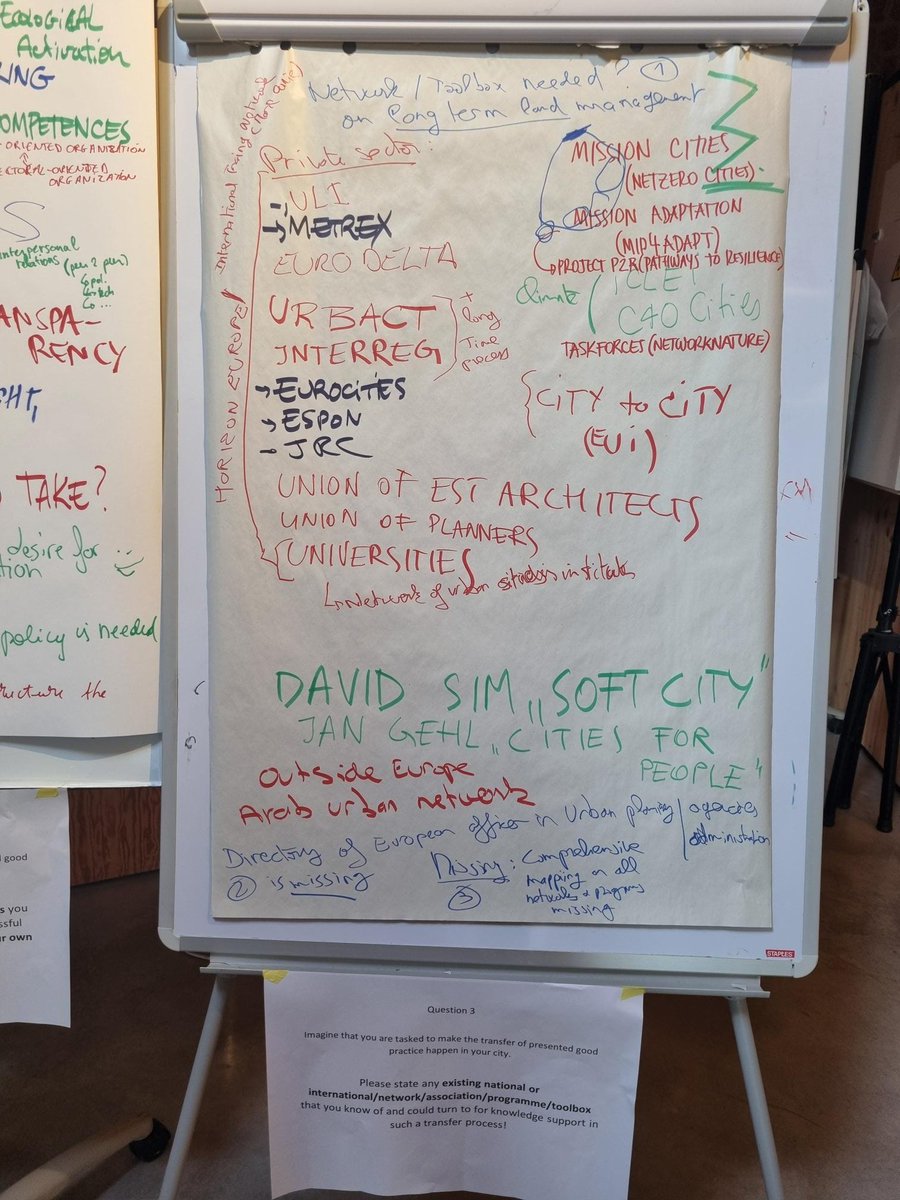 ECOLOGICAL
Activation
RING
COMPETENCES
- ORIENTED ORGANISATION
ECTORAL-ORIENTED
ORGANIZATION
S
interpersonal
relations (peer 2 peer)
ANSPA-
RENCY
GHT,
TAKE?
desire for
tion
policy is needed
ructure the
good
s you
ssful
ur own
Network / Toolbox needed? 1
on long term land management
International
HORIZON EUROPE /
Private sector:
- ULI
→ METREX
EURO DELTA
URBACT
INTERREG
+
long
Time
process
→ EUROCITIES
→ ESPON
- JRC
UNION OF EST ARCHITECTS
UNION OF PLANNERS
UNIVERSITIES
↳ Network of urban institutes
MISSION CITIES
(NETZERO CITIES)
MISSION ADAPTATION
(MIP4ADAPT)
→ PROJECT P2R (PATHWAYS TO RESILIENCE)
Climate
ICLEI
C40 Cities
TASKFORCES (NETWORKNATURE)
CiTY to CiTY
(EUi)
DAVID SIM „SOFT CITY"
JAN GEHL „CITIES FOR
PEOPLE"
outside Europe
Arab urban network
Directory of European offices in Urban planning / agencies
administration
2 is missing
Missing: Comprehensive
3 mapping on all
networks & programs
missing
STAPLES
Question 3
Imagine that you are tasked to make the transfer of presented good
practice happen in your city.
Please state any existing national or
international/network/association/programme/toolbox
that you know of and could turn to for knowledge support in
such a transfer process!